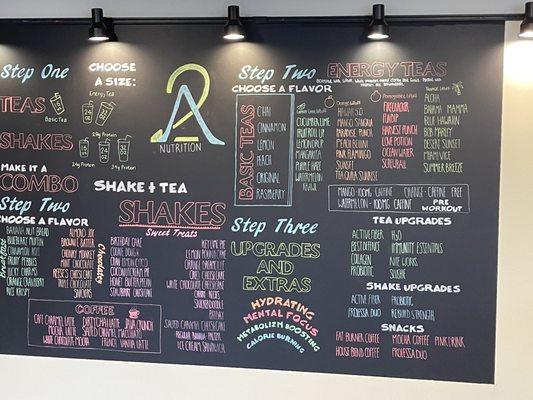 Step One
TEAS
SHAKES
MAKE IT A
COMBO
CHOOSE
A SIZE:
Basic Tea
Energy Tea
24g Protein
24g Protein
SHAKE + TEA
Step Two
CHOOSE A FLAVOR
Breakfast
BANANA NUT BREAD
BLUEBERRY MUFFIN
CINNAMON ROLL
FRUITY PEBBLES
LUCKY CHARMS
ORANGE CRANBERRY
RICE KRISPY
Chocolaty
ALMOND JOY
BROWNIE BATTER
CHUNKY MONKEY
MINT CHOCOLATE
REESE'S CHEESECAKE
TRIPLE CHOCOLATE
SNICKERS
COFFEE
CAFE CARAMEL LATTE
MOCHA LATTE
WHITE CHOCOLATE MOCHA
DIRTY CHAI LATTE
SALTED CARAMEL MACCHIATO
FRENCH VANILLA LATTE
JAVA CRUNCH
A2
NUTRITION
SHAKES
Sweet Treats
BIRTHDAY CAKE
COOKIE DOUGH
OATMEAL COOKIE
COCONUT CREAM PIE
HONEY BUTTER
STRAWBERRY CHEESECAKE
KEY LIME PIE
LEMON POUND CAKE
ORANGE DREAMSICLE
OREO CHEESECAKE
WHITE CHOCOLATE CHEESECAKE
SNICKERDOODLE
SALTED CARAMEL CHEESECAKE
ICE CREAM SANDWICH
Step Two
CHOOSE A FLAVOR
BASIC TEAS
CHAI
CINNAMON
LEMON
PEACH
ORIGINAL
RASPBERRY
ENERGY TEAS
CUCUMBER LIME
FRUIT ROLL UP
LEMON DROP
MARGARITA
PURPLE HAZE
WATERMELON
HAWAII 5.0
MANGO TANGO
PARADISE PUNCH
PEACHY KEEN
PINK FLAMINGO
SUNSET
TEA QUILA SUNRISE
FIRECRACKER
FLATLIP
HARVEST PUNCH
LOVE POTION
OCEAN WATER
SCREWBALL
ALOHA
BAHAMA MAMMA
BLUE HAWAIIAN
BOB MARLEY
DESERT SUNSET
MIAMI VICE
SUMMER BREEZE
MANGO-100MG CAFFEINE
ORANGE-CAFFEINE FREE
WATERMELON-100MG CAFFEINE
PRE
WORKOUT
Step Three
UPGRADES
AND
EXTRAS
HYDRATING
MENTAL FOCUS
METABOLISM BOOSTING
CALORIE BURNING
TEA UPGRADES
ACTIVE FIBER
BEST DEFENSE
COLLAGEN
PROBIOTIC
H2O
IMMUNITY ESSENTIALS
NITE WORKS
SHAKE UPGRADES
ACTIVE FIBER
PROLESSA DUO
PROBIOTIC
REBUILD STRENGTH
SNACKS
FAT BURNER COFFEE
HOUSE BLEND COFFEE
MOCHA COFFEE
PROLESSA DUO
PINK DRINK